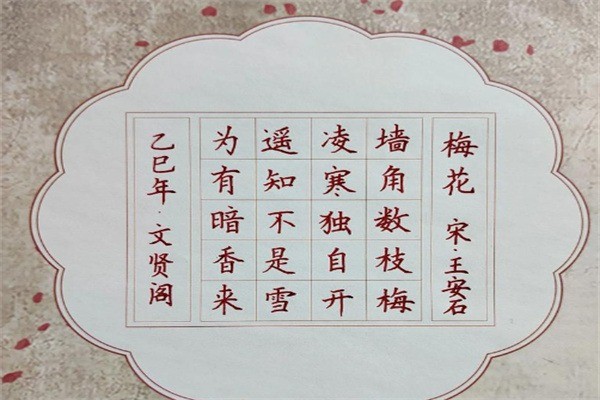 梅花 宋·王安石
墙角数枝梅
凌寒独自开
遥知不是雪
为有暗香来
乙巳年·文贤阁